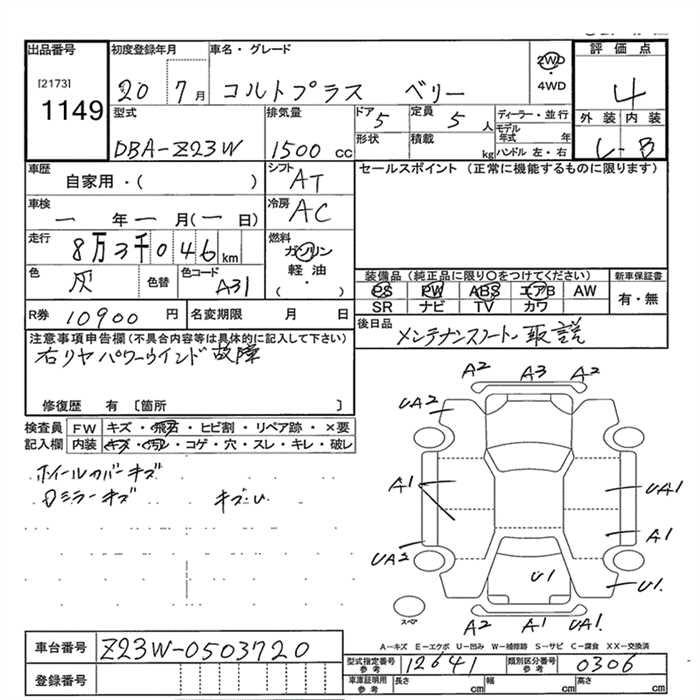 出品番号 初度登録年月 車名・グレード 評価点
[2173] 20 7月 コルトプラス ベリー 2WD・4WD 4
1149
型式 排気量 ドア 定員 ディーラー・並行 外装 内装
DBA-Z23W 1500cc 5 5人 モデル年式 年
形状 積載 kg ハンドル 左・右 B
車歴 シフト セールスポイント(正常に機能するものに限ります)
自家用・( ) AT
車検 冷房
一年一月(一日) AC
走行 燃料
8万3千046km ガソリン
軽油・
( )
色 色替 色コード 装備品(純正品に限り○をつけてください) 新車保証書
灰 A31 PS PW ABS エアB AW 有・無
SR ナビ TV カワ
R券 10900円 名変期限 月 日 後日品
メンテナンスノート・取説
注意事項申告欄(不具合内容等は具体的に記入して下さい)
右リヤパワーウインド故障
修復歴 有 〔箇所 〕
検査員 FW キズ・飛石・ヒビ割・リペア跡・×要
記入欄 内装 キズ・汚レ・コゲ・穴・スレ・キレ・破レ
ホイールカバーキズ
ミラーキズ キズ・U
A2 A3 A2
UA2
A1 UA1
A1
UA2
U1 U1
スペア
A2 A1 UA1
A-キズ E-エクボ U-凹み W-補修跡 S-サビ C-腐食 XX-交換済
車台番号 Z23W-0503720
型式指定番号 参考 12641 類別区分番号 参考 0306
登録番号 車庫証明用 参考 長さ cm 幅 cm 高さ cm